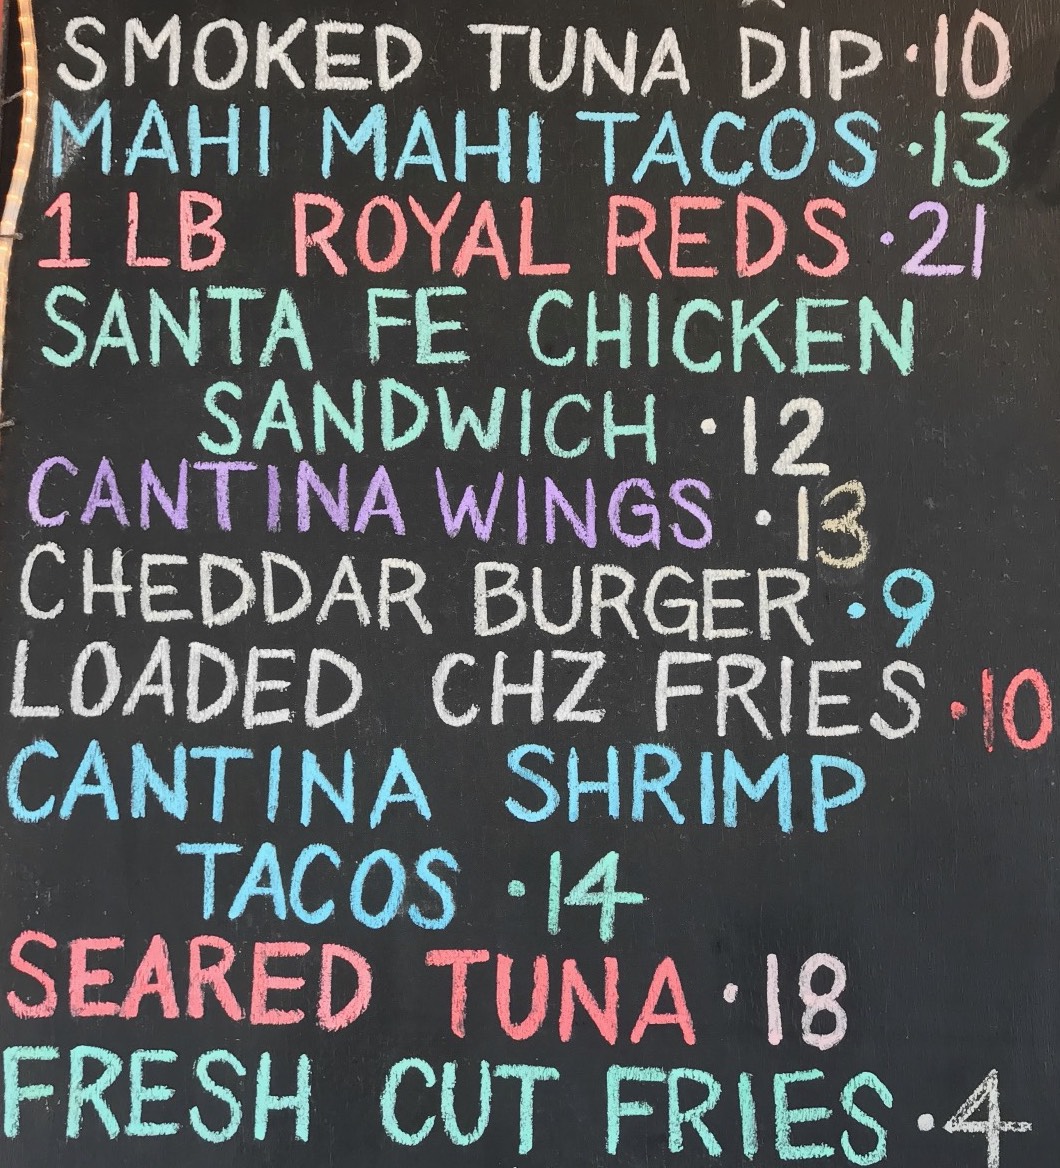 SMOKED TUNA DIP ·10
MAHI MAHI TACOS ·13
1 LB ROYAL REDS ·21
SANTA FE CHICKEN
SANDWICH ·12
CANTINA WINGS ·13
CHEDDAR BURGER ·9
LOADED CHZ FRIES ·10
CANTINA SHRIMP
TACOS ·14
SEARED TUNA ·18
FRESH CUT FRIES ·4